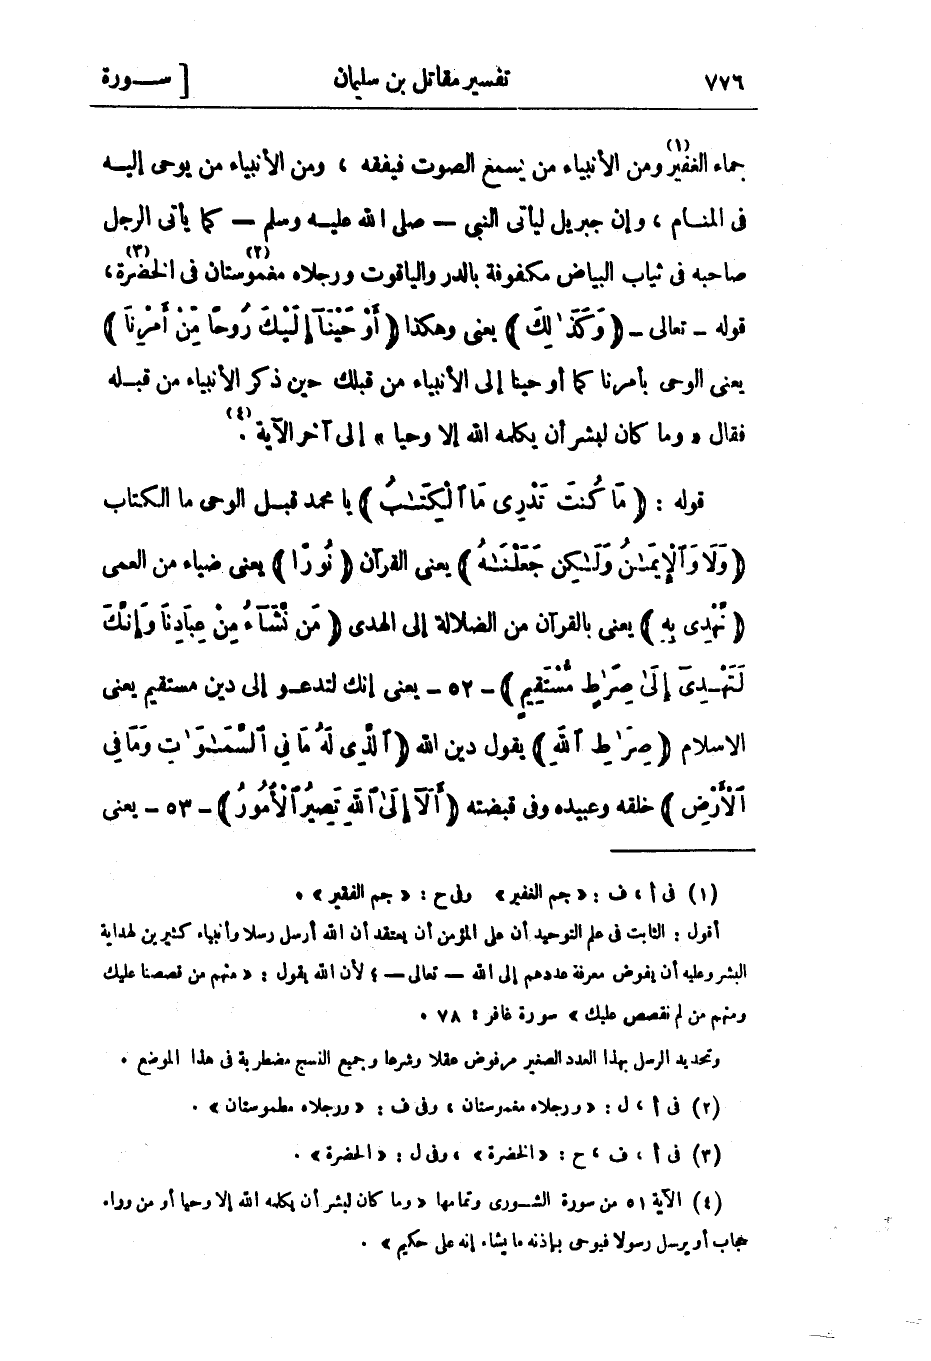 ٧٧٦ تفسير مقاتل بن سليمان [ ســورة
جماء الغفير(١) ومن الأنبياء من يسمع الصوت فيفقه ، ومن الأنبياء من يوحى إليه
فى المنام ، وإن جبريل ليأتى النبي — صلى الله عليه وسلم — كما يأتى الرجل
صاحبه فى ثياب البياض مكفوفة بالدر والياقوت ورجلاه مغموستان(٢) فى الخضرة(٣) ،
قوله – تعالى – ( وَكَذَٰلِكَ ) يعنى وهكذا ( أَوْحَيْنَآ إِلَيْكَ رُوحًا مِّنْ أَمْرِنَا )
يعنى الوحى بأمرنا كما أوحينا إلى الأنبياء من قبلك حين ذكر الأنبياء من قبله
فقال « وما كان لبشر أن يكلمه الله إلا وحيا » إلى آخر الآية(٤) .
قوله : ( مَا كُنتَ تَدْرِى مَا ٱلْكِتَٰبُ ) يا محمد قبل الوحى ما الكتاب
( وَلَا وَٱلْإِيمَٰنُ وَلَٰكِن جَعَلْنَٰهُ ) يعنى القرآن ( نُورًا ) يعنى ضياء من العمى
( نَّهْدِى بِهِ ) يعنى بالقرآن من الضلالة إلى الهدى ( مَن نَّشَآءُ مِنْ عِبَادِنَا وَإِنَّكَ
لَتَهْدِىٓ إِلَىٰ صِرَٰطٍ مُّسْتَقِيمٍ ) – ٥٢ – يعنى إنك لتدعو إلى دين مستقيم يعنى
الاسلام ( صِرَٰطِ ٱللَّهِ ) يقول دين الله ( ٱلَّذِى لَهُ مَا فِى ٱلسَّمَٰوَٰتِ وَمَا فِى
ٱلْأَرْضِ ) خلقه وعبيده وفى قبضته ( أَلَآ إِلَى ٱللَّهِ تَصِيرُ ٱلْأُمُورُ ) – ٥٣ – يعنى
(١) فى أ ، ف : « جم الغفير » وفى ح : « جم الفقير » .
أقول : الثابت فى علم التوحيد أن على المؤمن أن يعتقد أن الله أرسل رسلا وأنبياء كثيرين لهداية
البشر وعليه أن يفوض معرفة عددهم إلى الله — تعالى — ؛ لأن الله يقول : « منهم من قصصنا عليك
ومنهم من لم نقصص عليك » سورة غافر : ٧٨ .
وتحديد الرسل بهذا العدد الصغير مرفوض عقلا وشرعا وجميع النسخ مضطربة فى هذا الموضع .
(٢) فى أ ، ل : « ورجلاه مغموستان » وفى ف : « ورجلاه مطموستان » .
(٣) فى أ ، ف ، ح : « الخضرة » ، وفى ل : « الحضرة » .
(٤) الآية ٥١ من سورة الشورى وتمامها « وما كان لبشر أن يكلمه الله إلا وحيا أو من وراء
حجاب أو يرسل رسولا فيوحى بإذنه ما يشاء إنه على حكيم » .